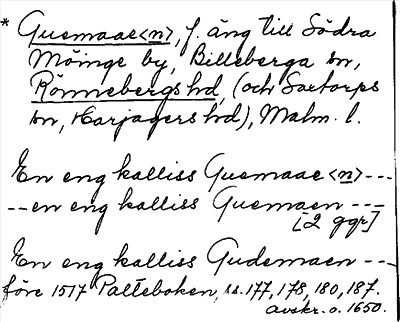 * Guemaae<n>, f. äng till Södra
Möinge by, Billeberga sn,
Rönnebergs hd, (och Saxtorps
sn, Harjagers hd), Malm. l.
En eng kalliss Guemaae <n> ---
--en eng kalliss Guemaen ---
[2 ggr]
En eng kalliss Gudemaen ---
före 1517 Palteboken, ss. 177, 178, 180, 187.
avskr. o. 1650.